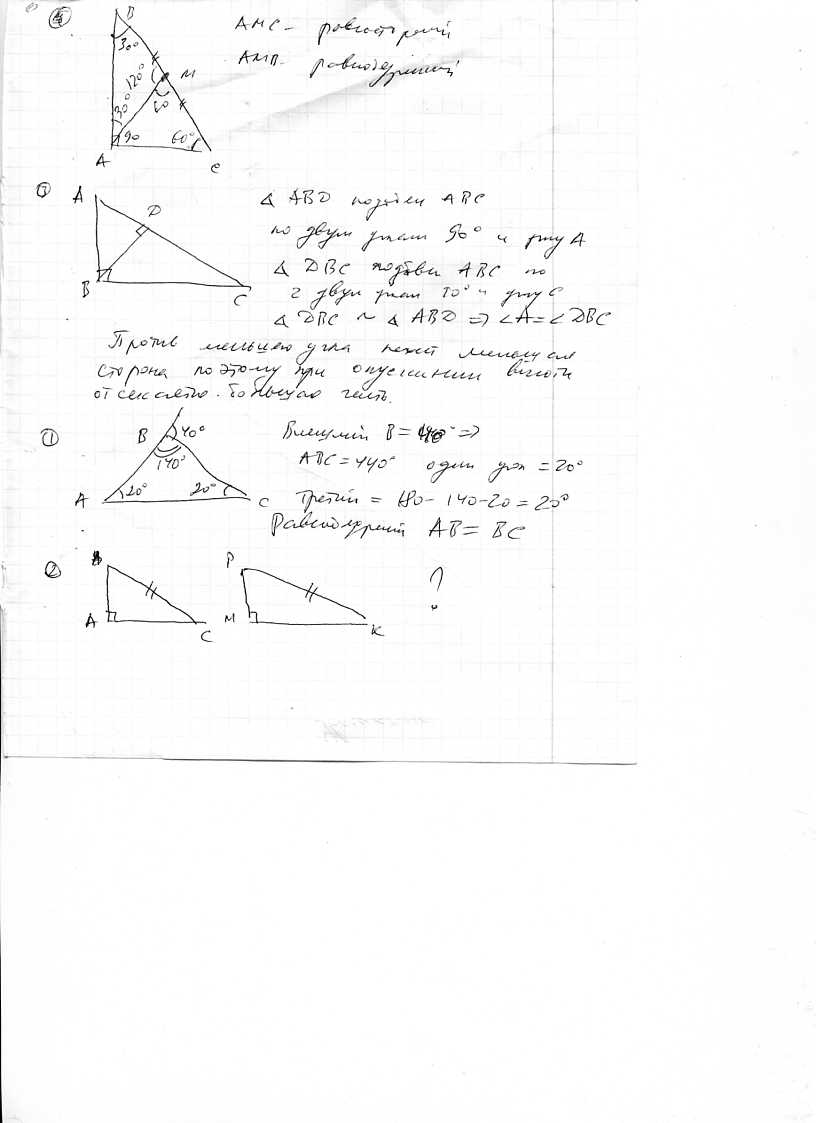 ④
B
30°
120°
M
30°
60
90
60°
A
C
AMC - равносторонний
AMB - равнобедренный
③
A
D
B
C
Δ ABD подобен ABC
по двум углам 90° и углу A
Δ DBC подобен ABC по
2 двум углам 90° и углу C
Δ DBC ~ Δ ABD => ∠A = ∠DBC
Против меньшего угла лежит меньшая
сторона поэтому при опускании высоты
отсекается большая часть.
①
B
40°
140°
A
20°
20°
C
Внешний B = 40° =>
ABC = 140° один угол = 20°
Третий = 180 - 140 - 20 = 20°
Равнобедренный AB = BC
②
A
C
P
M
K
?